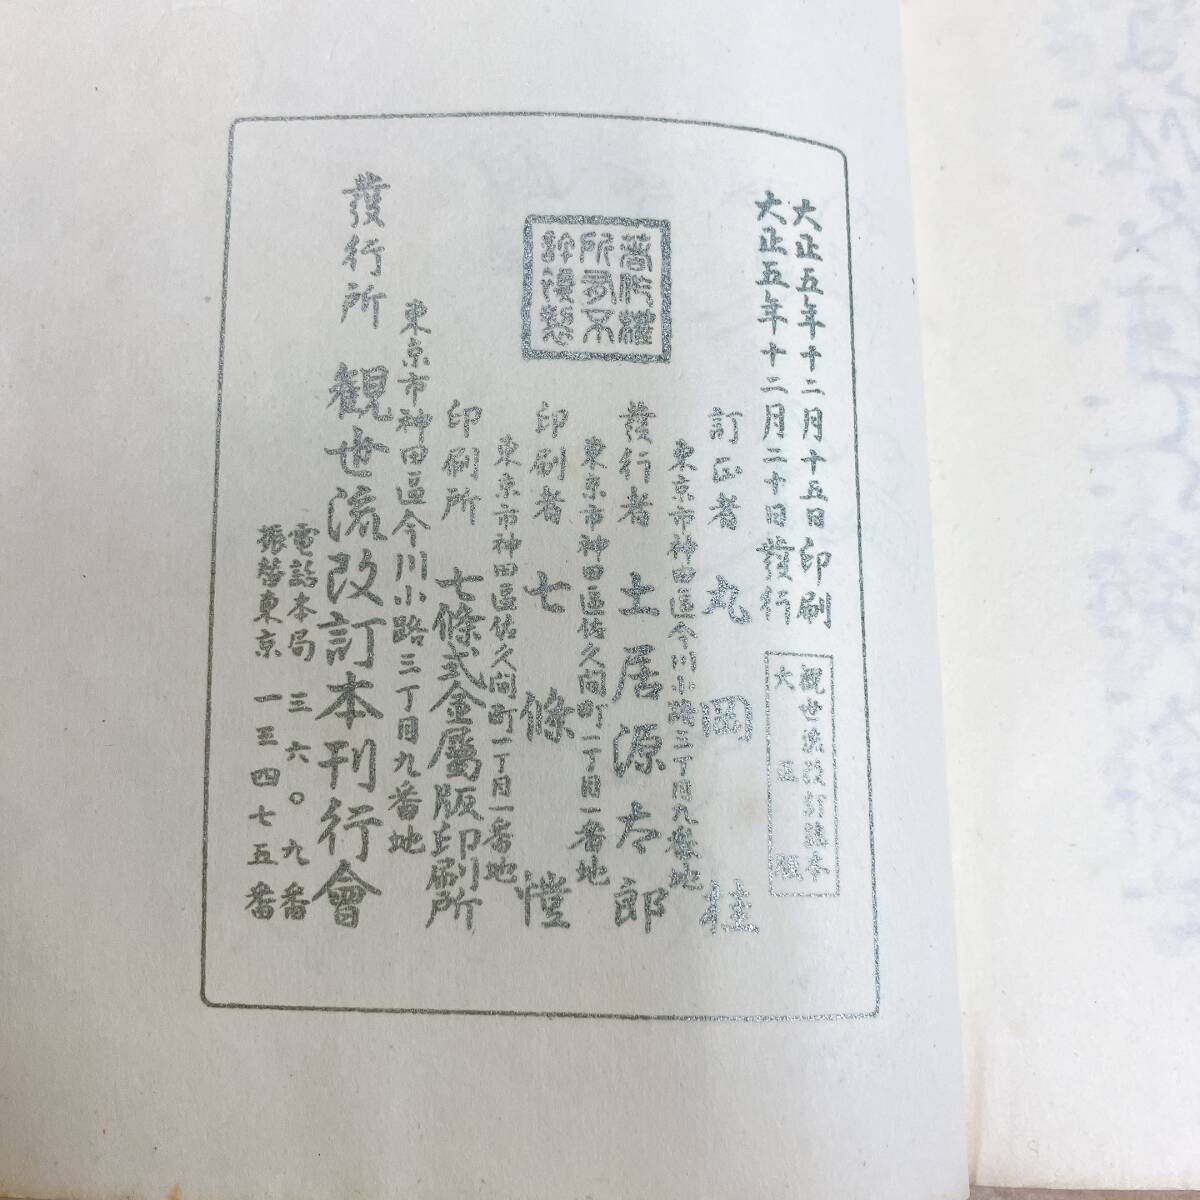 大正五年十二月十五日印刷
大正五年十二月二十日發行
観世流改訂謡本
大正版
訂正者 丸岡桂
東京市神田區今川小路三丁目九番地
發行者 土居源太郎
東京市神田區佐久間町一丁目一番地
印刷者 七條愷
東京市神田區佐久間町一丁目一番地
印刷所 七條式金屬版印刷所
著作權
所有不
許複製
東京市神田區今川小路三丁目九番地
發行所 観世流改訂本刊行會
電話本局三六〇九番
振替東京一三四七五番